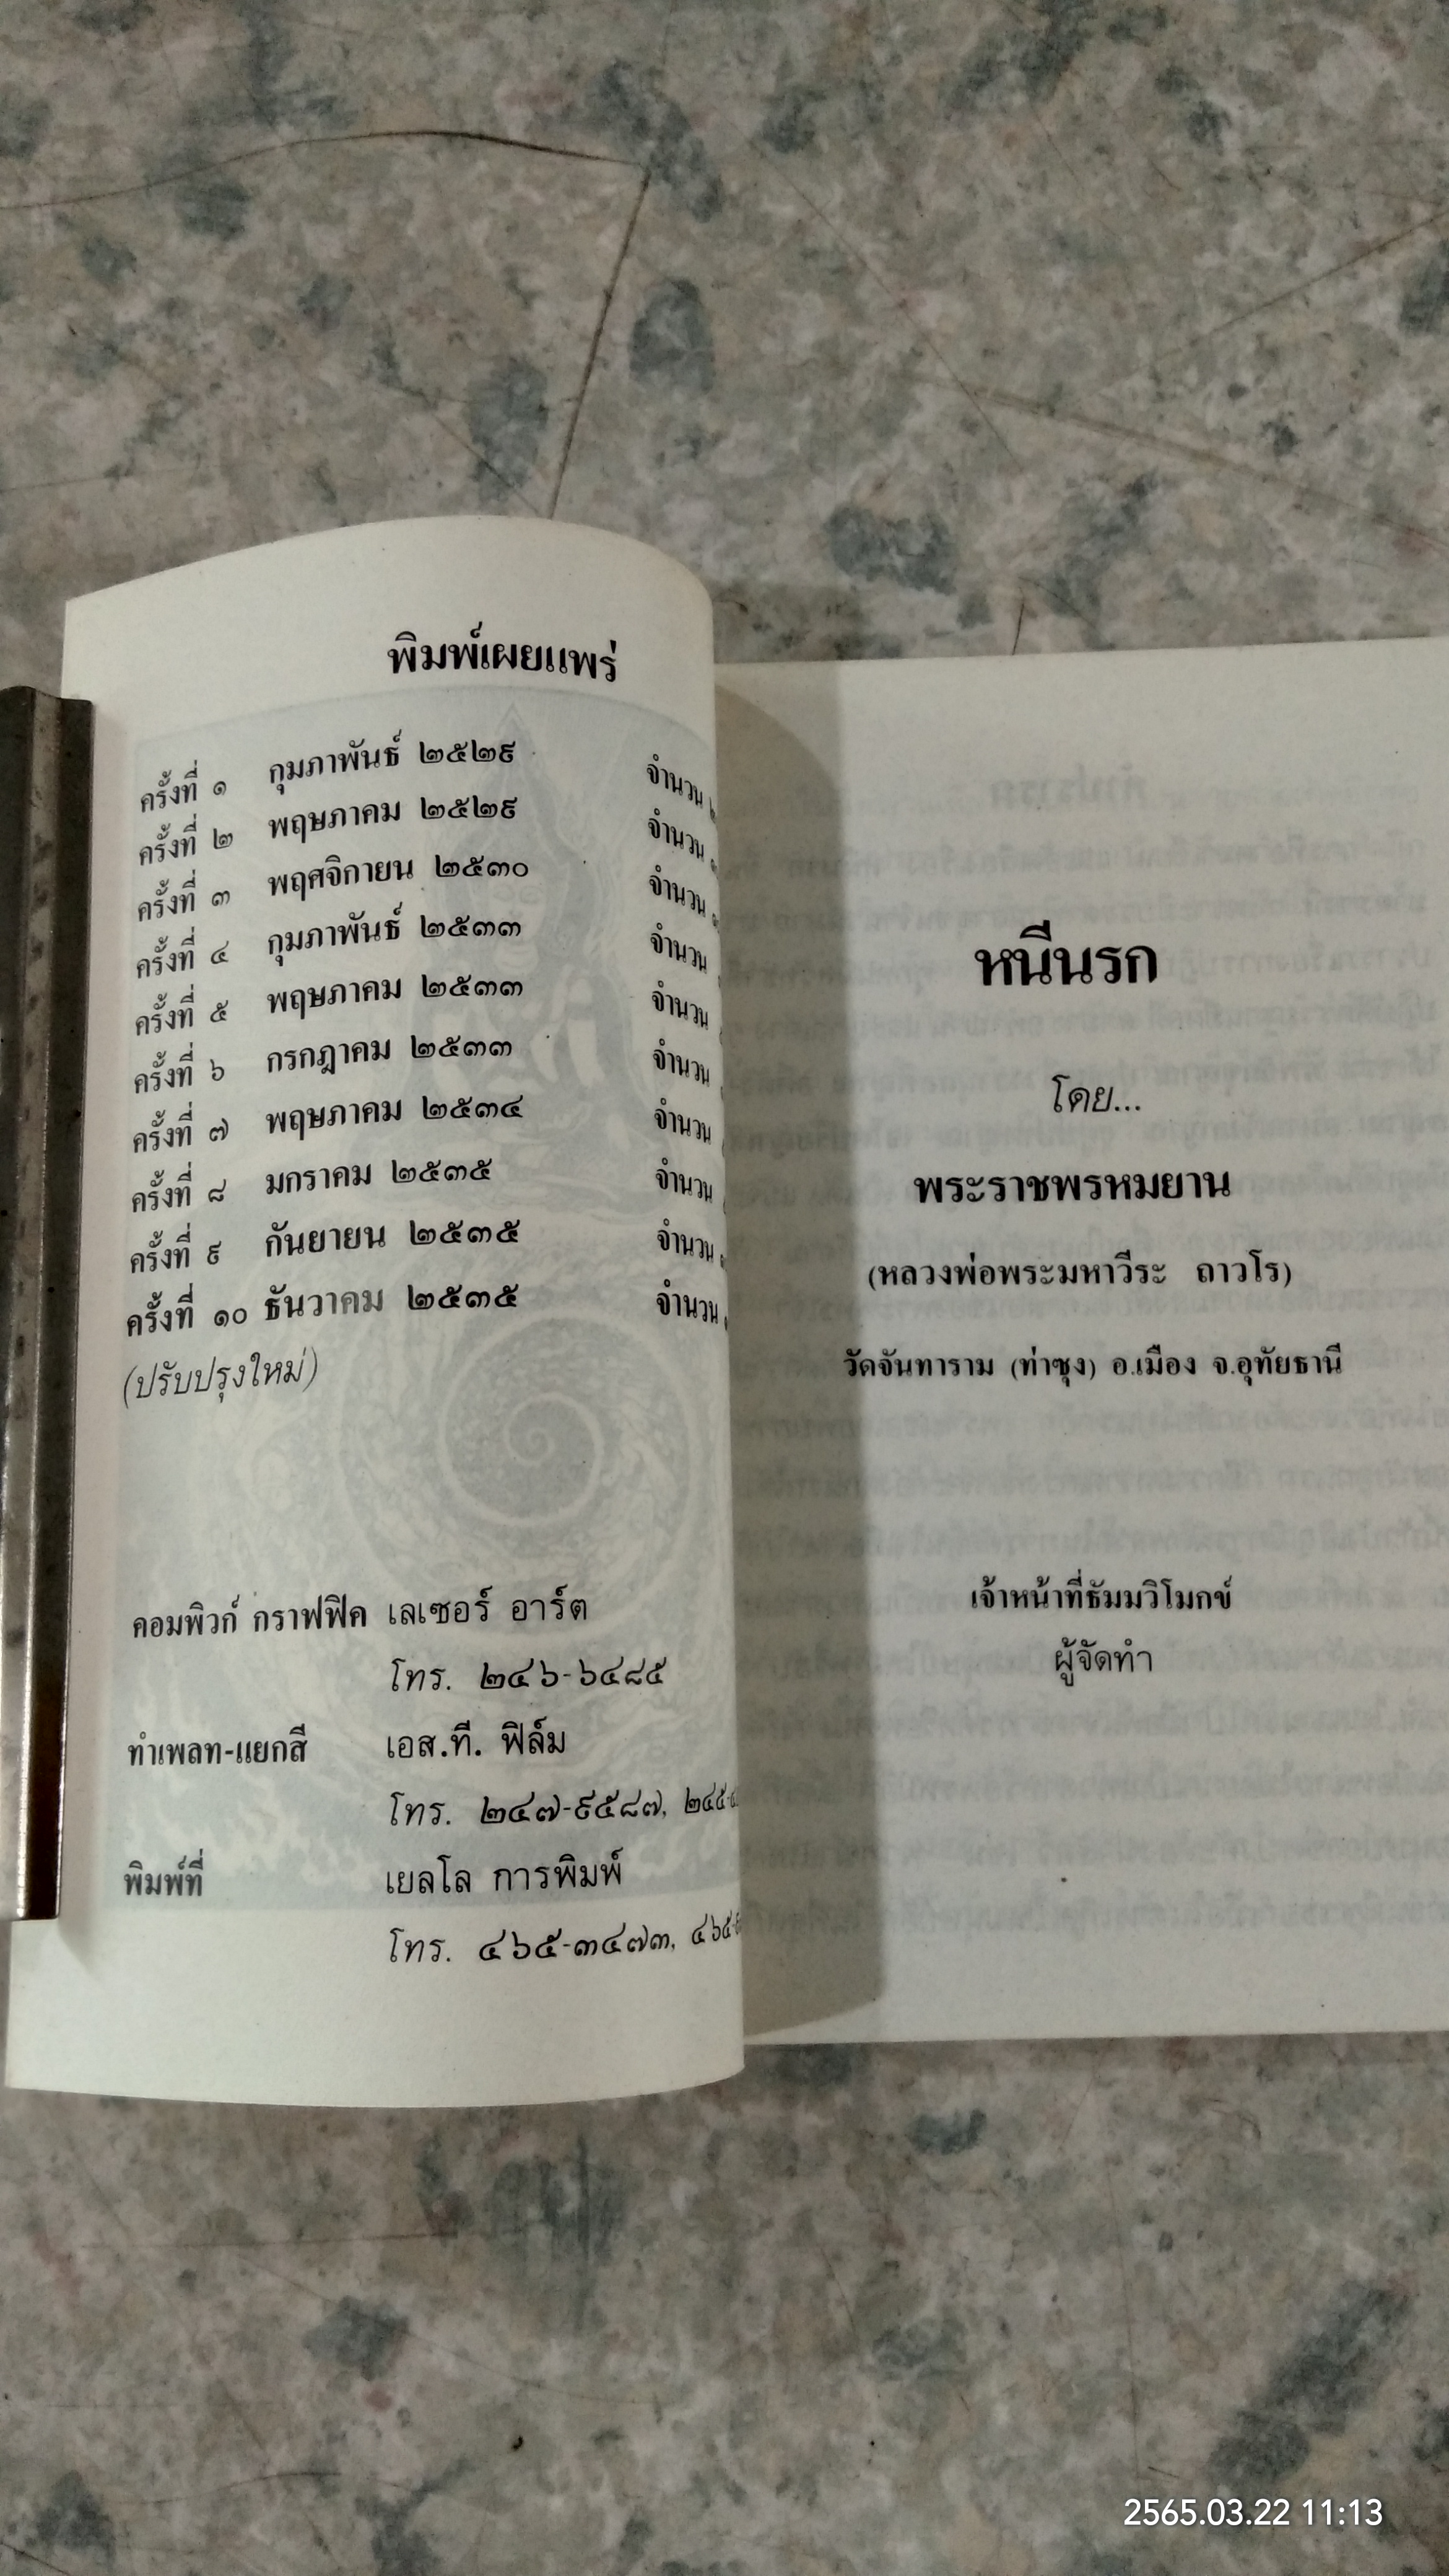 พิมพ์เผยแพร่
ครั้งที่ ๑ กุมภาพันธ์ ๒๕๒๙ จำนวน
ครั้งที่ ๒ พฤษภาคม ๒๕๒๙ จำนวน
ครั้งที่ ๓ พฤศจิกายน ๒๕๓๐ จำนวน
ครั้งที่ ๔ กุมภาพันธ์ ๒๕๓๓ จำนวน
ครั้งที่ ๕ พฤษภาคม ๒๕๓๓ จำนวน
ครั้งที่ ๖ กรกฎาคม ๒๕๓๓ จำนวน
ครั้งที่ ๗ พฤษภาคม ๒๕๓๔ จำนวน
ครั้งที่ ๘ มกราคม ๒๕๓๕ จำนวน
ครั้งที่ ๙ กันยายน ๒๕๓๕ จำนวน
ครั้งที่ ๑๐ ธันวาคม ๒๕๓๕ จำนวน
(ปรับปรุงใหม่)
คอมพิวก์ กราฟฟิค เลเซอร์ อาร์ต
โทร. ๒๔๖-๖๔๘๕
ทำเพลท-แยกสี เอส.ที. ฟิล์ม
โทร. ๒๔๗-๙๕๘๗,
พิมพ์ที่ เยลโล การพิมพ์
โทร. ๔๖๕-๓๔๗๓,
หนีนรก
โดย...
พระราชพรหมยาน
(หลวงพ่อพระมหาวีระ ถาวโร)
วัดจันทาราม (ท่าซุง) อ.เมือง จ.อุทัยธานี
เจ้าหน้าที่ธัมมวิโมกข์
ผู้จัดทำ
2565.03.22 11:13